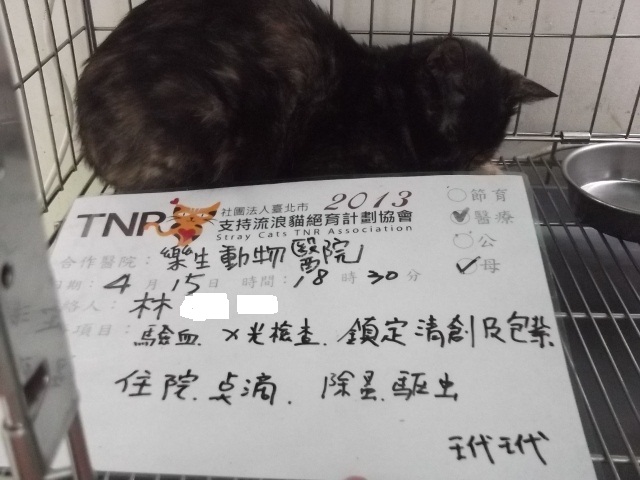 TNR 社團法人臺北市 2013
支持流浪貓絕育計劃協會
Stray Cats TNR Association
節育
醫療
公
母
合作醫院：樂生動物醫院
期：4月15日 時間：18時30分
絡人：林
項目：驗血 X光檢查 鎮定清創及包紮
住院 点滴 除蚤 驅虫
玳玳